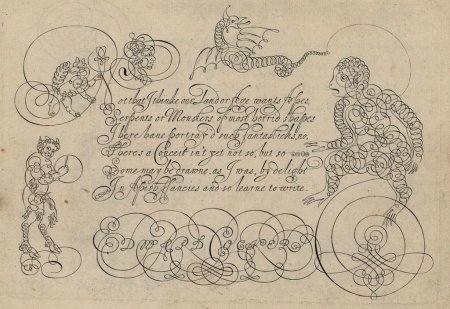 Not that I thinke our Land or Age wants Apes,
Serpents or Monsters of most horrid shapes
I here have portray'd such fantasticks, no,
There's a Conceit in't yet not so, but so
Some may be drawne, as I was, by delight
In Apish Fancies and so learne to write.
EDWARD COCKER